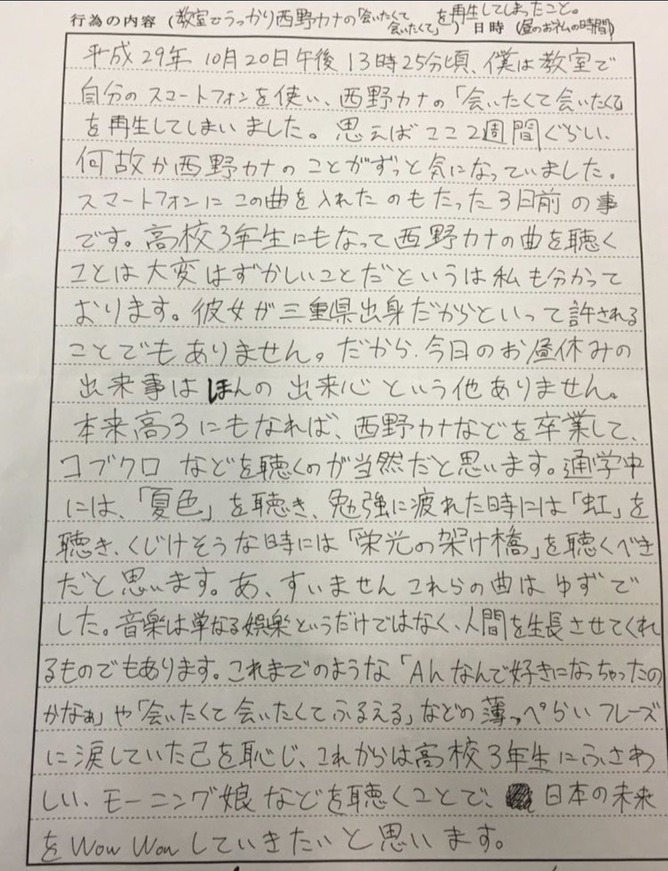 行為の内容(教室でうっかり西野カナの「会いたくて会いたくて」を再生してしまったこと。)日時(昼のお弁の時間)
平成29年10月20日午後13時25分頃、僕は教室で
自分のスマートフォンを使い、西野カナの「会いたくて会いたくて」
を再生してしまいました。思えばここ2週間ぐらい、
何故か西野カナのことがずっと気になっていました。
スマートフォンにこの曲を入れたのもたった3日前の事
です。高校3年生にもなって西野カナの曲を聴く
ことは大変はずかしいことだというは私も分かって
おります。彼女が三重県出身だからといって許される
ことでもありません。だから、今日のお昼休みの
出来事はほんの出来心という他ありません。
本来高3にもなれば、西野カナなどを卒業して、
コブクロなどを聴くのが当然だと思います。通学中
には、「夏色」を聴き、勉強に疲れた時には「虹」を
聴き、くじけそうな時には「栄光の架け橋」を聴くべき
だと思います。あ、すいませんこれらの曲はゆずで
した。音楽は単なる娯楽というだけではなく、人間を生長させてくれ
るものでもあります。これまでのような「Ahなんで好きになっちゃったの
かなぁ」や「会いたくて会いたくてふるえる」などの薄っぺらいフレーズ
に涙していた己を恥じ、これからは高校3年生にふさわ
しい、モーニング娘などを聴くことで、日本の未来
をWow Wowしていきたいと思います。